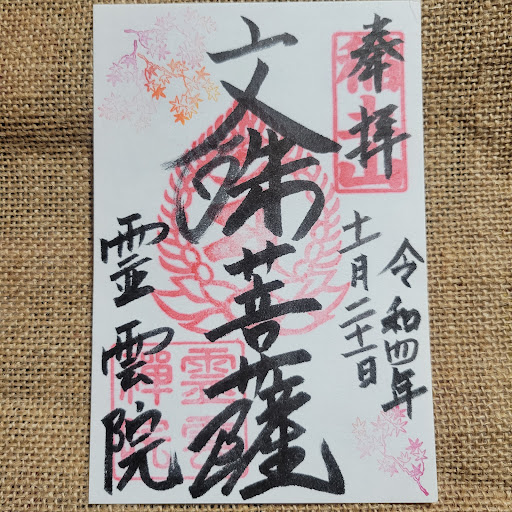 奉拝
令和四年
十一月二十一日
文殊菩薩
霊雲院